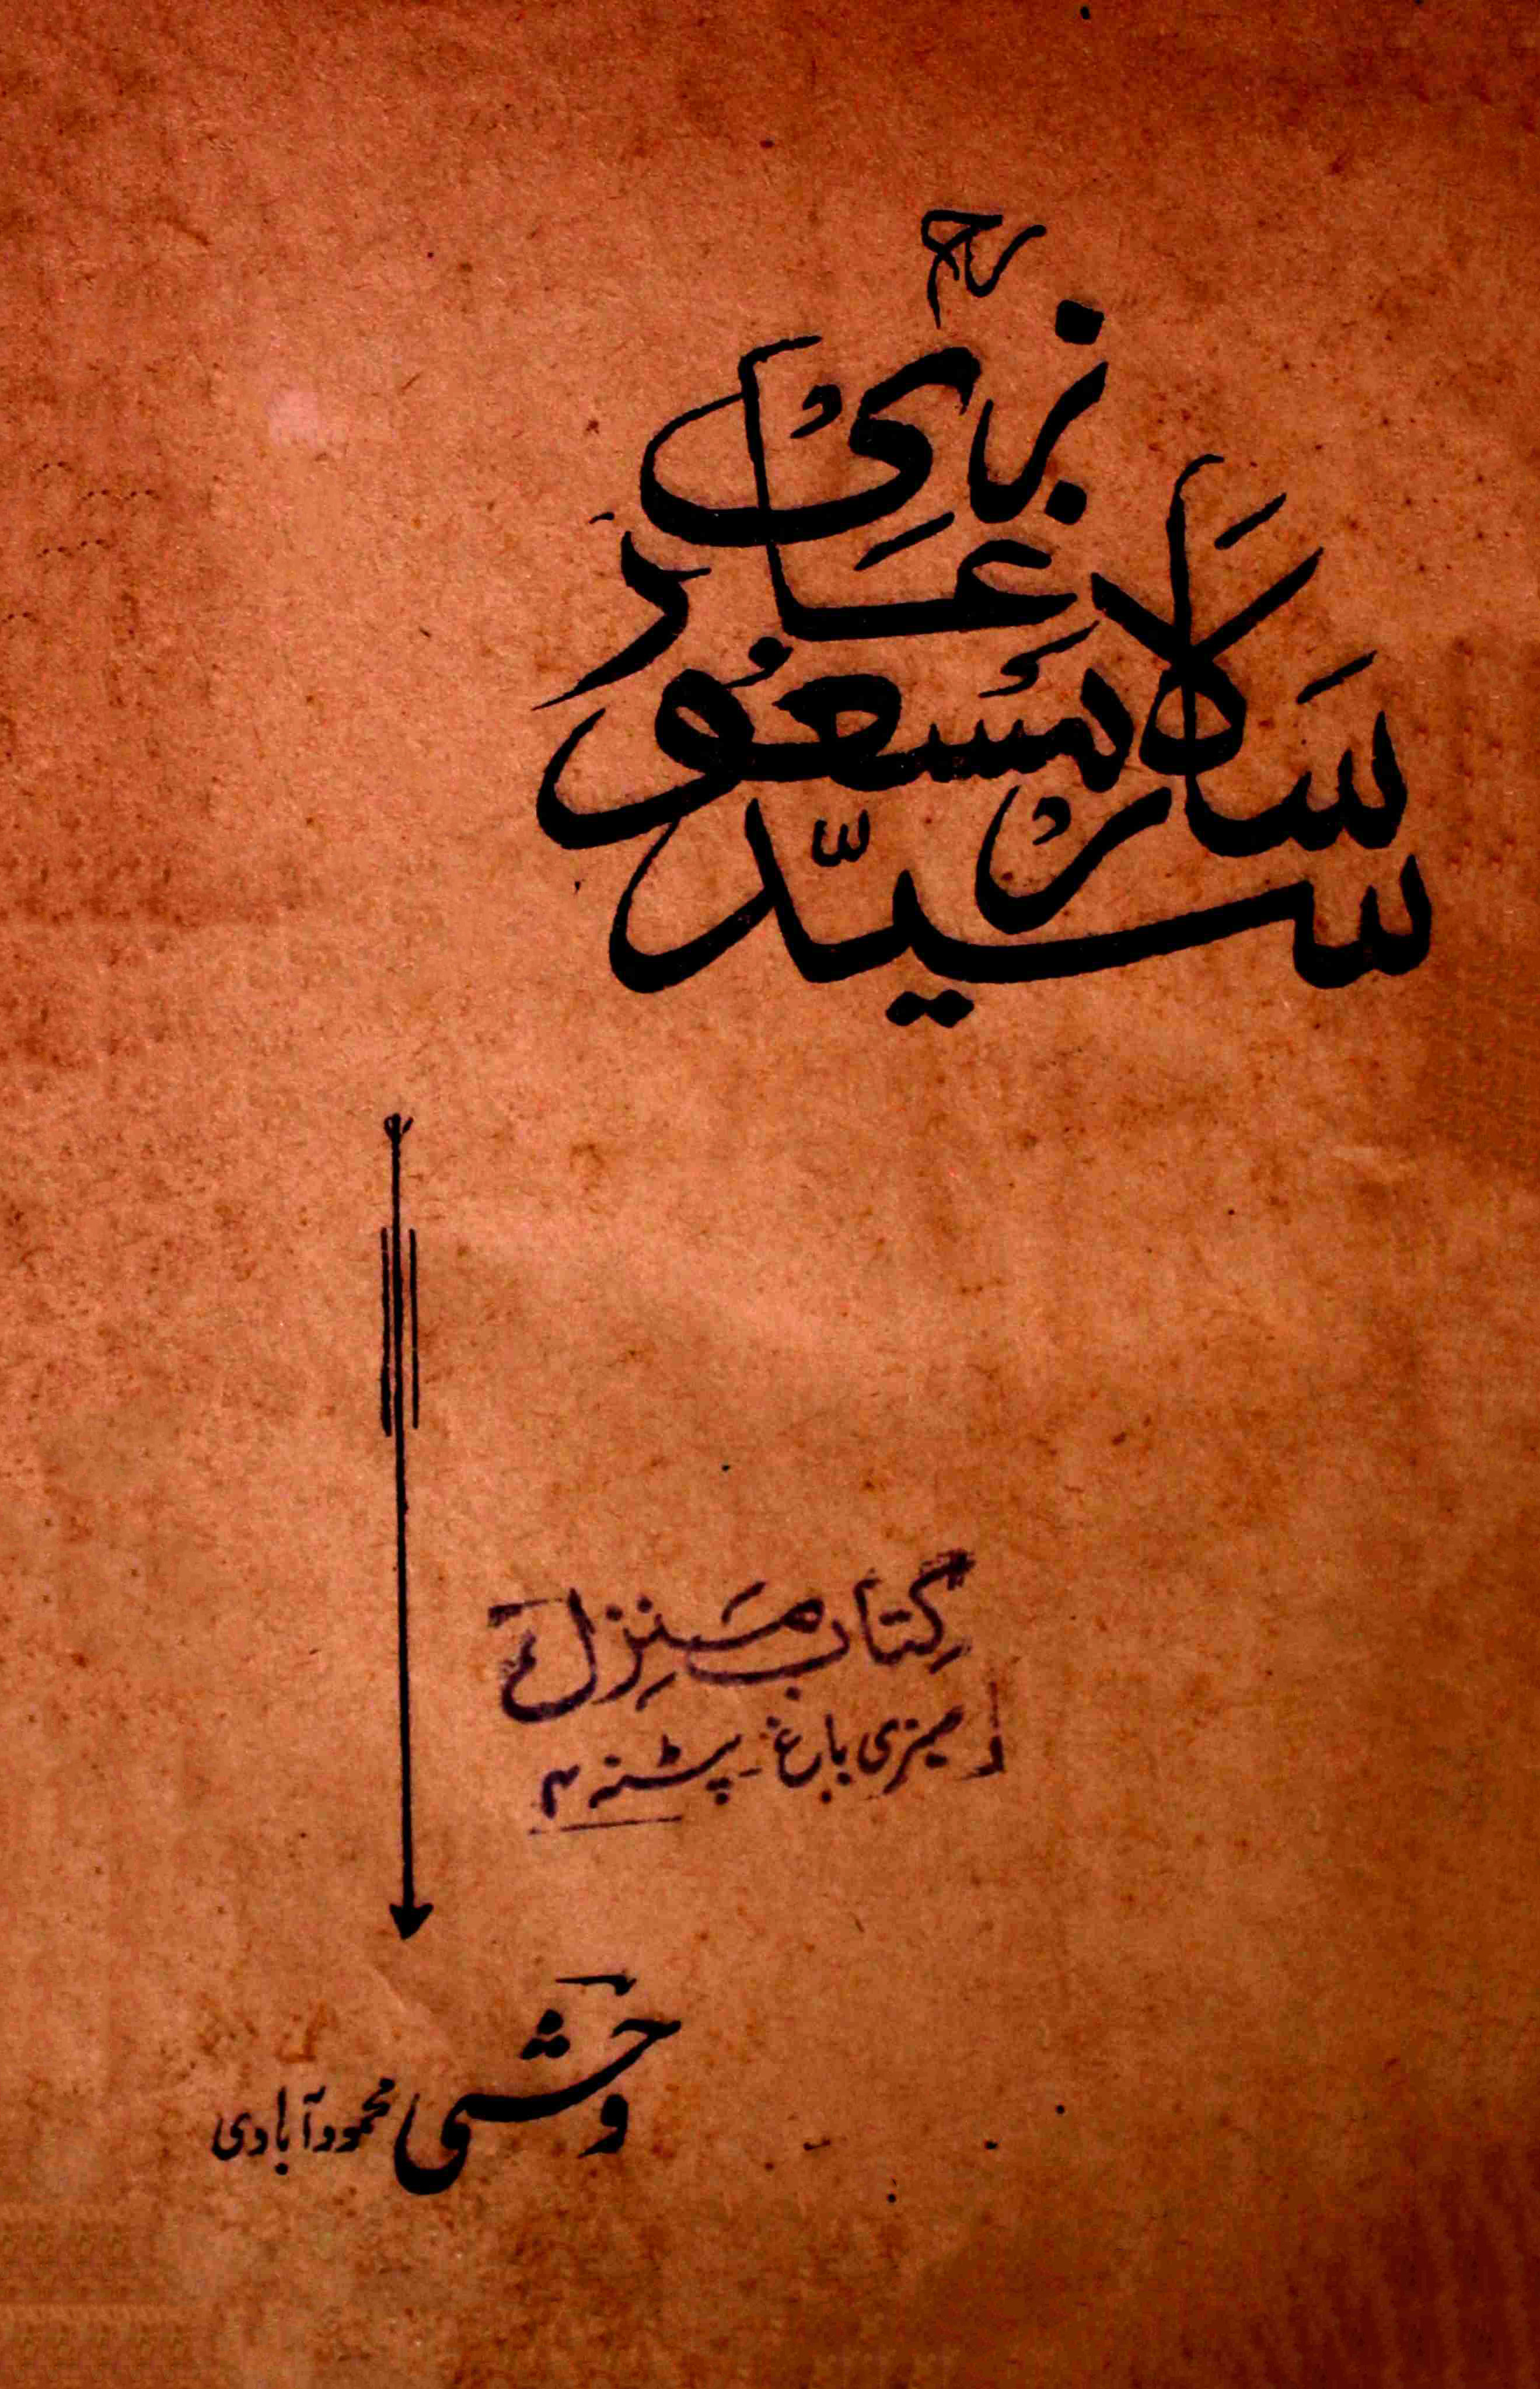 سیّد سالار مسعود غازیؒ
کتاب منزل
سبزی باغ ۔ پٹنہ ۴
وحشی محمودآبادی